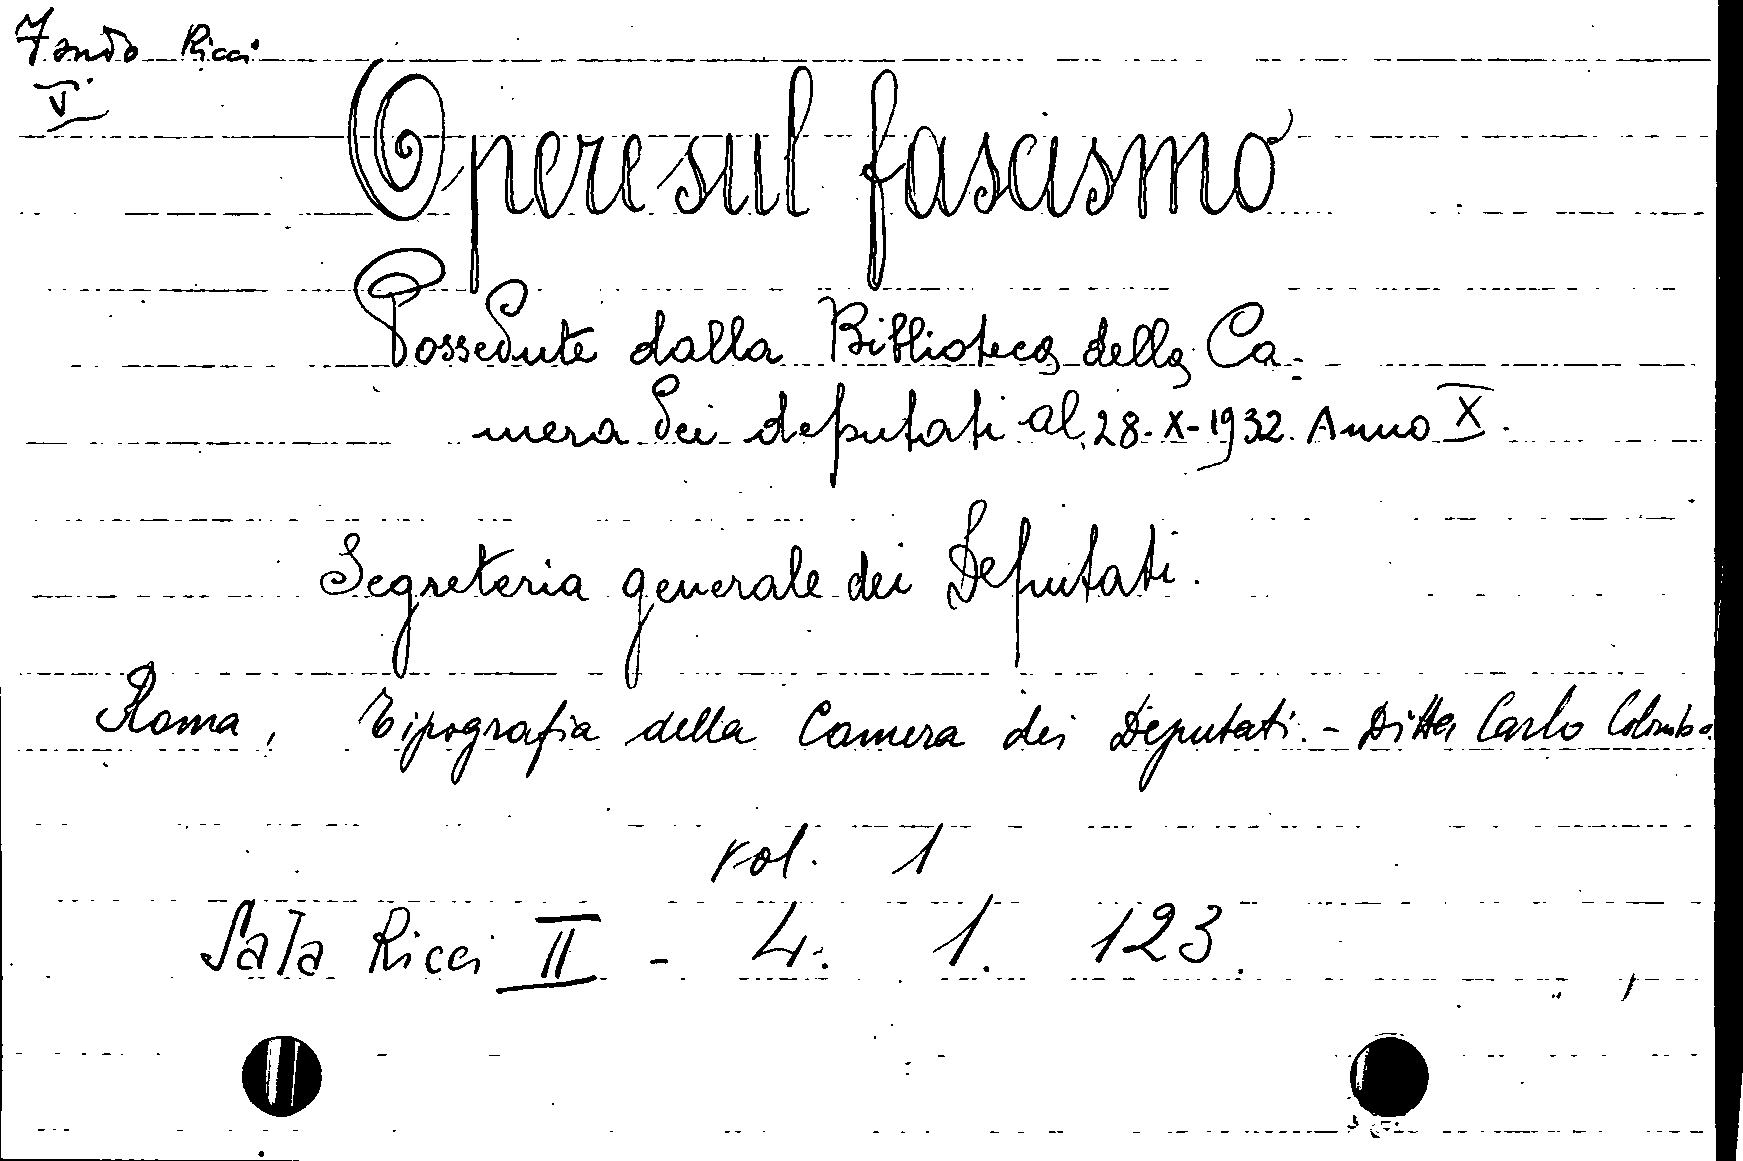 Fondo Ricci
V
Opere sul fascismo
Possedute dalla Biblioteca della Ca-
mera dei deputati al 28-X-1932 Anno X.
Segreteria generale dei Deputati.
Roma, Tipografia della Camera dei Deputati. - Ditta Carlo Colombo.
vol. 1
Sala Ricci II - 4. 1. 123.